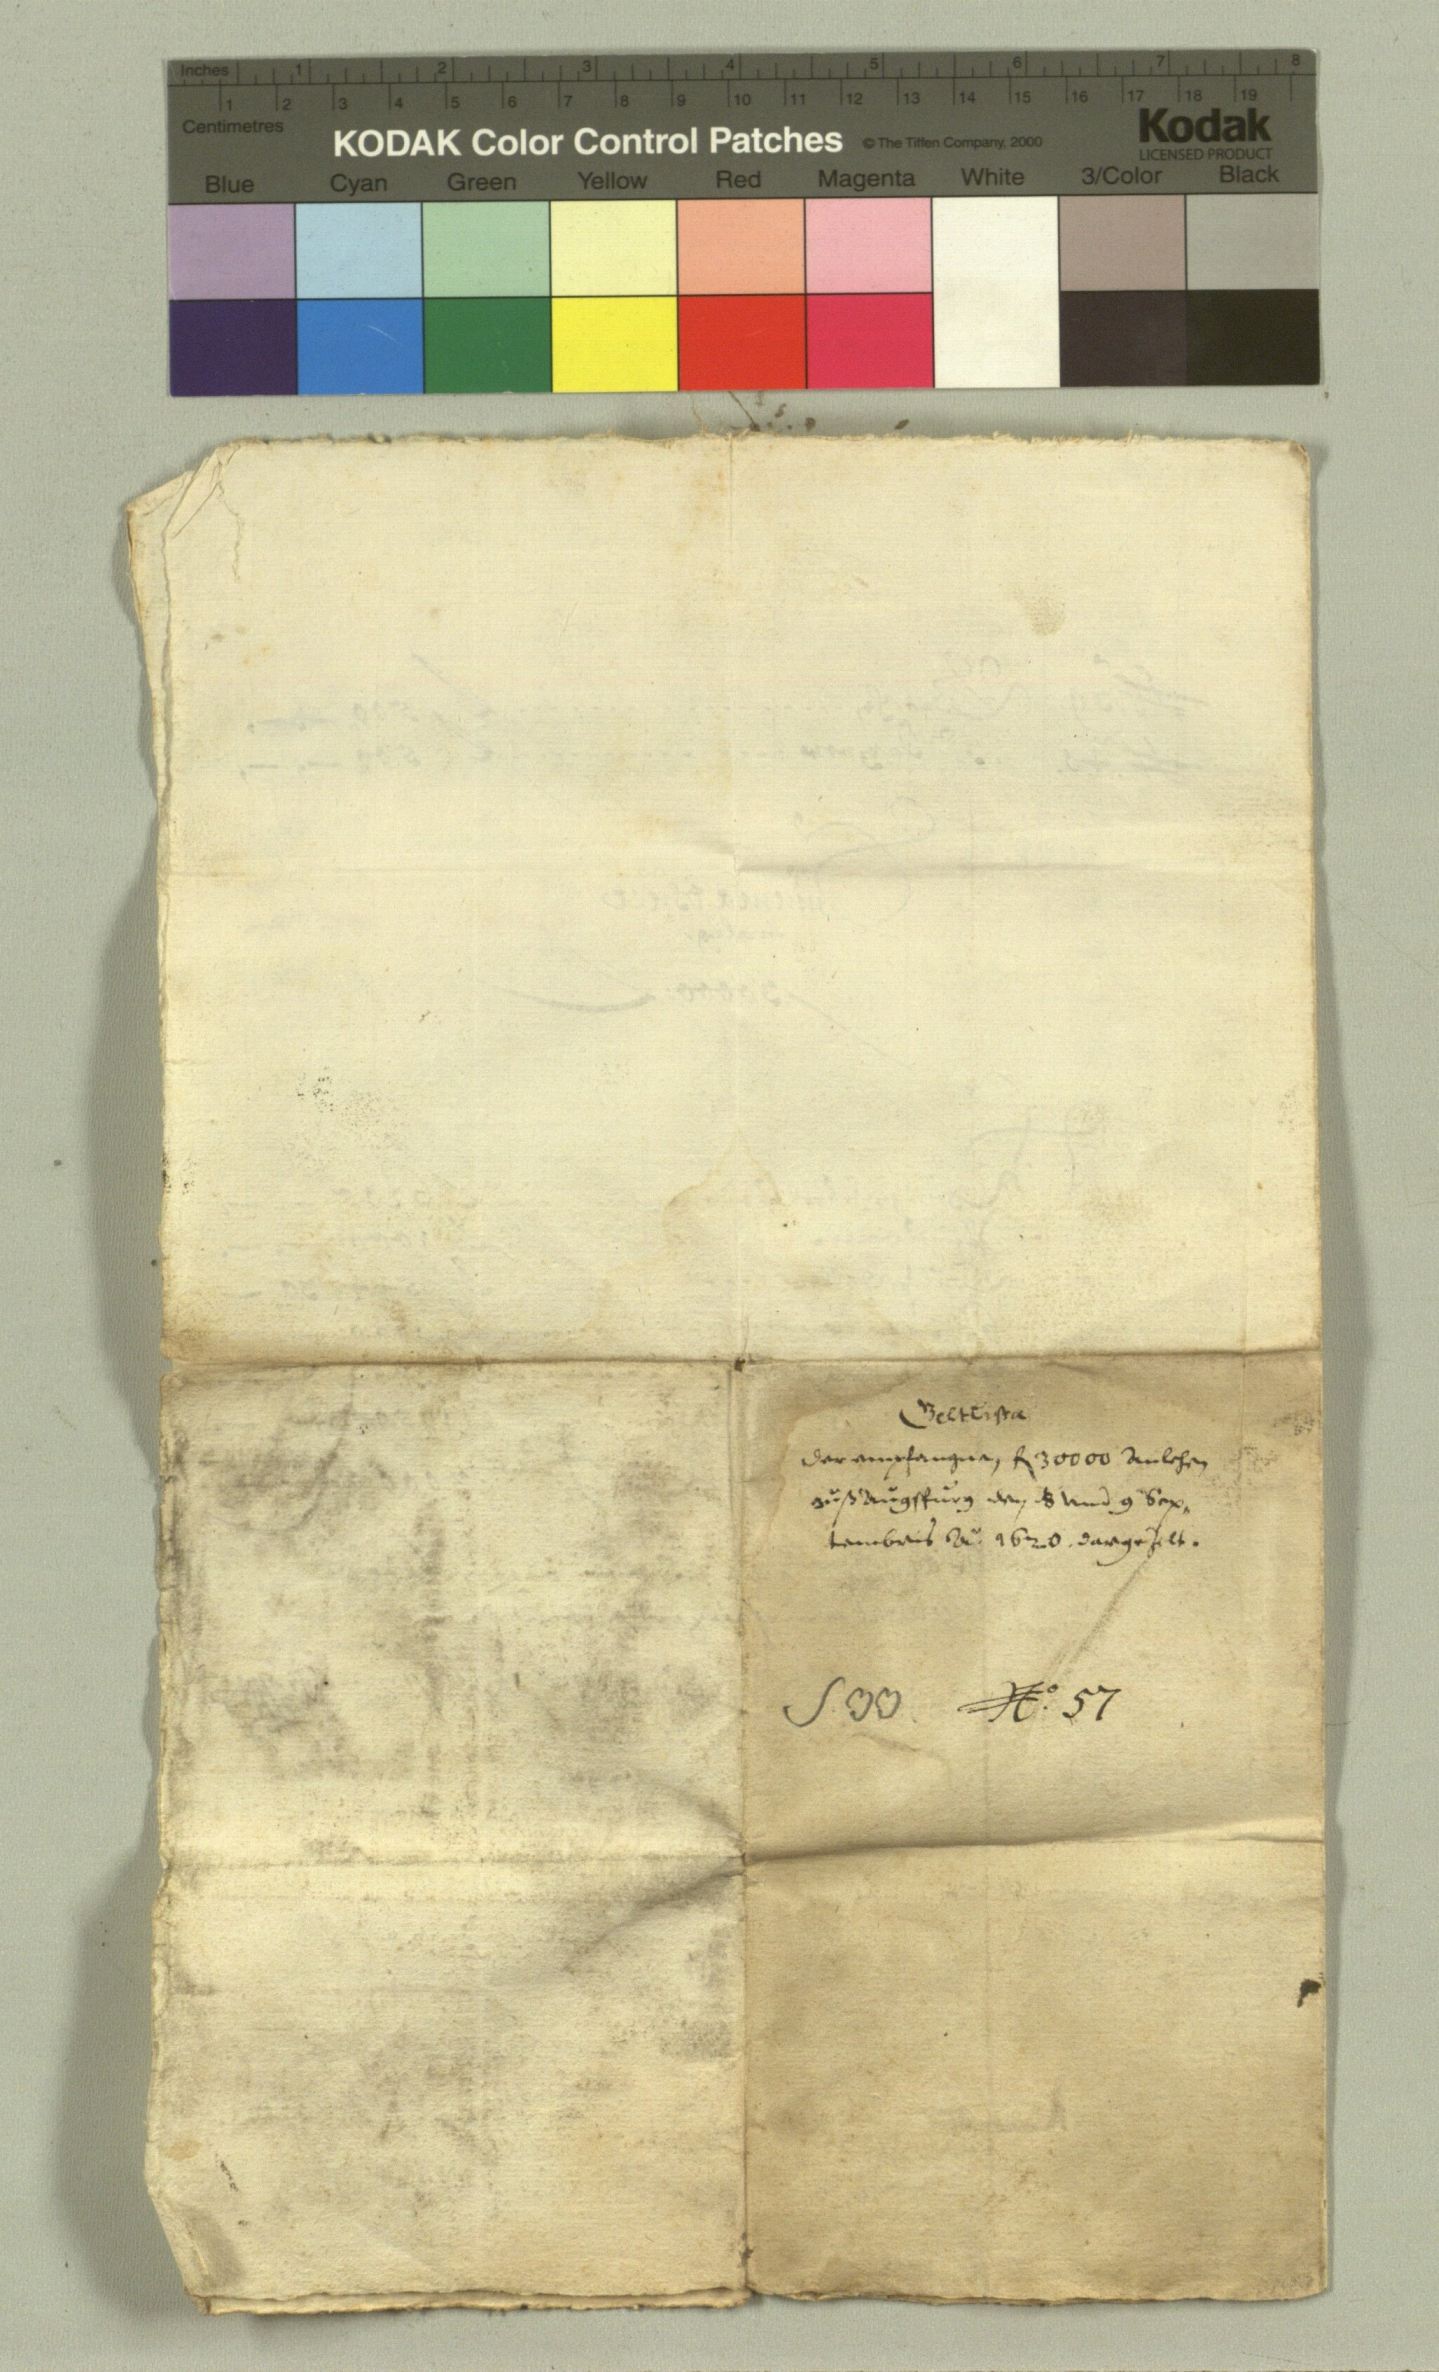 Inches 1 2 3 4 5 6 7 8
1 2 3 4 5 6 7 8 9 10 11 12 13 14 15 16 17 18 19
Centimetres
KODAK Color Control Patches © The Tiffen Company, 2000 Kodak
LICENSED PRODUCT
Blue Cyan Green Yellow Red Magenta White 3/Color Black
Geltlista
der empfangne, fl 30000 Anlehen
auß Augspurg den 8 und 9 Sep„
tembris Aº. 1620. dargezelt.
Nº. 57